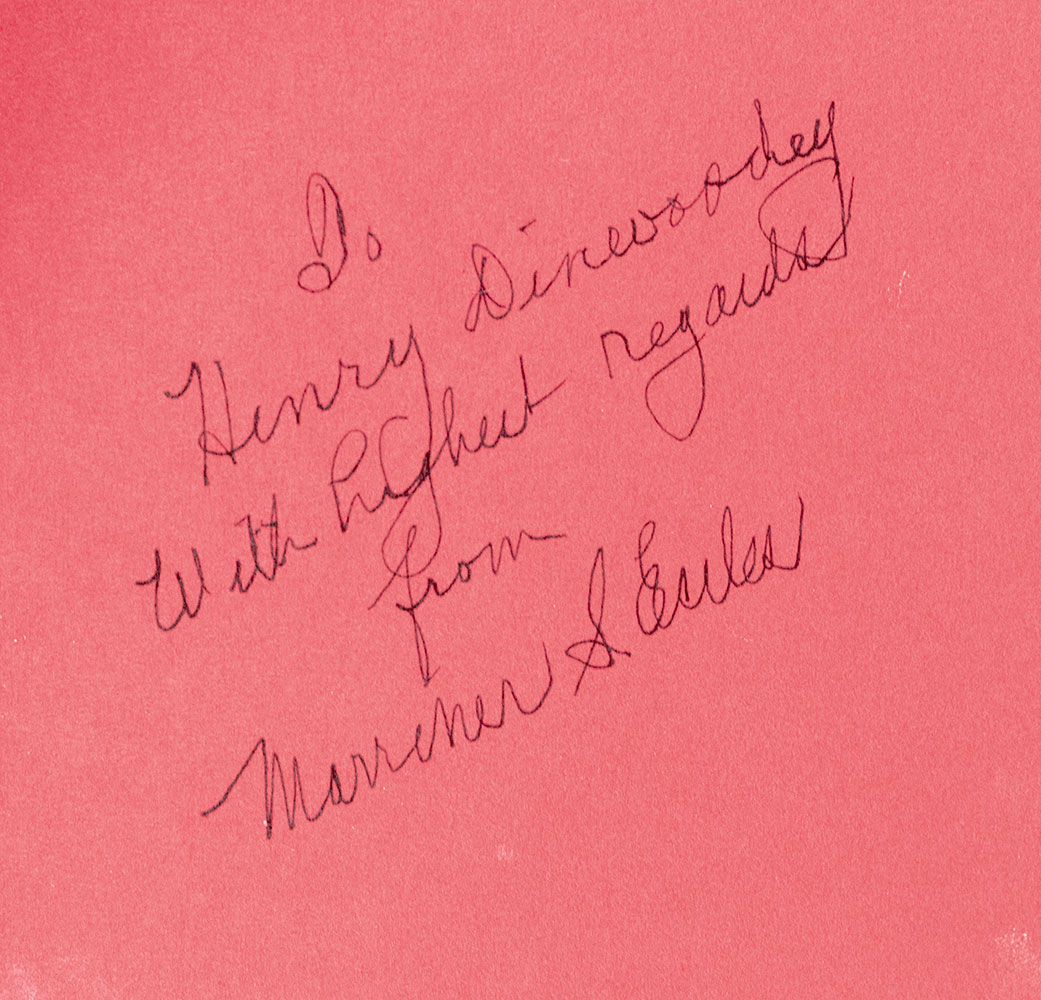 To
Henry Dinwoodey
With highest regards
from
Marriner S Eccles